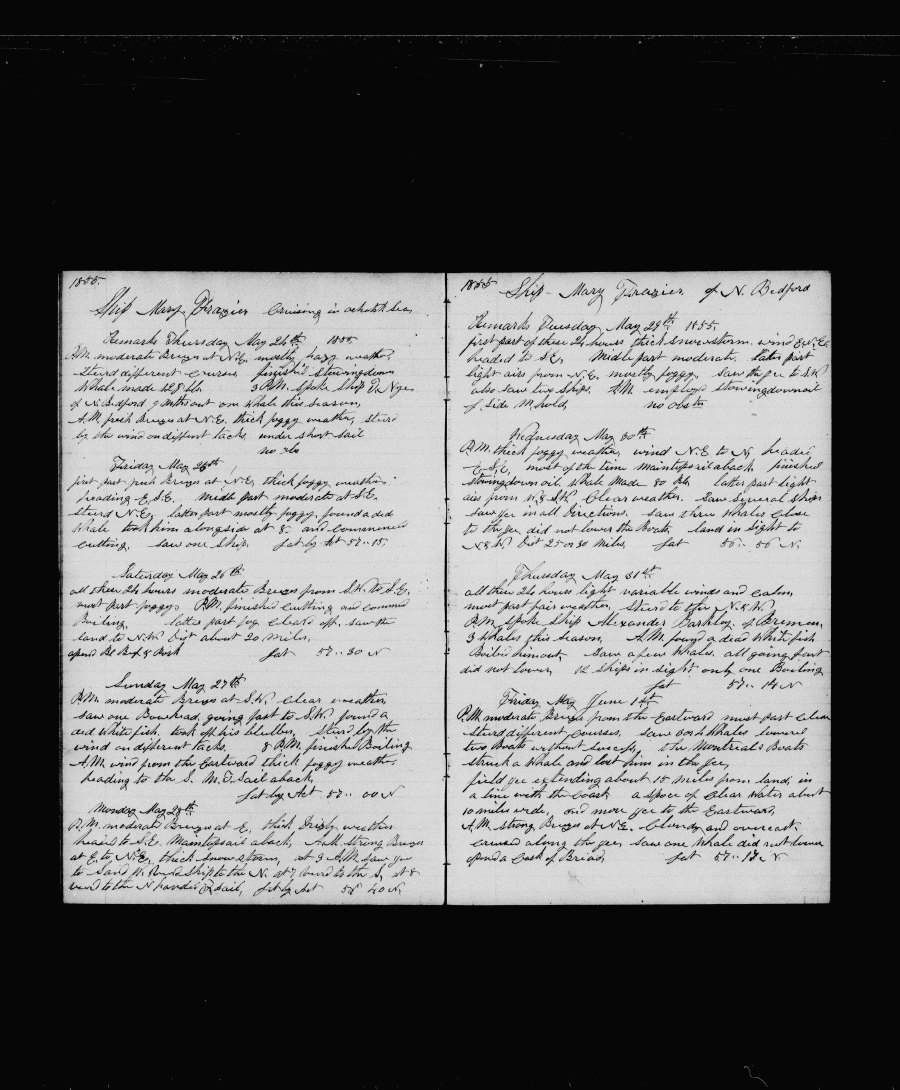 1855.
Ship Mary Frazier Cruising in ochotsk Sea,
Remarks Thursday May 24th 1855
P.M. moderate Breezes at N.E. mostly hazy weather,
steerd different Courses finished stowingdown
Whale made 128 bbls 3 P.M. Spoke Ship E. Nye
of N. Bedford 9 Mths out one Whale this season,
A.M. fresh Breezes at N.E. thick foggy weather, steerd
by the wind on diffent tacks under short sail
no obs
Friday May 25th
first part fresh Breezes at N.E, thick foggy weather
heading E.S.E. Middle part moderate at S.E.
steerd N.E, latter part mostly foggy, found a ded
Whale took him alongside at 8. and commenced
Cutting, saw one Ship. Lat by Act 57..15.
Saturday May 26th
all these 24 hours moderate Breezes from S.W. to S.E.
most part foggy P.M. finished Cutting and commenced
Boiling, latter part fog Cleard off. saw the
land to N.W. Dist about 20 Miles,
opend Bl Beef & Pork Lat 57..30 N
Sunday May 27th
P.M. moderate Breezes at S.W. Clear weather
saw one Bowhead, going fast to S.W. found a
ded White fish, took off his blubber, Steerd by the
wind on different tacks. 8 P.M. finishd Boiling
A.M. wind from the Eastward thick foggy weather
heading to the S. M.T. Sail aback,
Lat by Act 57.. 00 N
Monday May 28th
P.M. moderate Breezes at E, thick Drizly weather
headed to S.E. Maintopsail aback, A.M. strong Breezes
at E. to N.E, thick Snow Storm, at 3 A.M. saw Ice
to S and W. wore Ship to the N. at 7 wore to the S, at 8
wore to the N Sail, Lat by Act 56 40 N.
1855 Ship Mary Frazier of N. Bedford
Remarks Tuesday May 29th 1855.
first part of these 24 hours thick snow storm. wind E & N.E.
headed to S.E. Middle part moderate, latter part
light airs from N.E. mostly foggy. Saw the Ice to S.W
also saw two ships. A.M. employd stowingdown oil
of side M. hold, no obs tn
Wednesday May 30th
P.M. thick foggy weather, wind N.E to N, headed
E.S.E. most of the time Maintopsail aback finished
stowingdown oil Whale Made 80 Bbls latter part light
airs from W. & S.W. Clear weather. Saw Several Ships
saw Ice in all Directions. saw three Whales Close
to the Ice, did not lower the Boats, land in sight to
N & W. Dist 25 or 30 Miles, Lat 56.. 56 N.
Thursday May 31st
all these 24 hours light variable winds and Calm,
most part fair weather, Steerd to the N. & W.
P.M. Spoke Ship Alexander Barkley, of Bremen,
3 Whales this Season, A.M. found a dead White fish
Boiled him out, Saw a few Whales all going fast
did not lower, 12 Ships in sight only one Boiling
Lat 57.. 14 N
Friday May June 1st
P.M. moderate Breezes from the Eastward most part Clear
steerd different Courses, saw Whales lowered
two Boats without success, the Montreals Boats
struck a Whale and lost him in the Ice,
field Ice extending about 15 miles from land, in
a line with the Coast a space of Clear Water about
10 miles wide, and more Ice to the Eastward,
A.M. strong Breezes at N.E. Cloudy and overcast,
cruised along the Ice, saw one Whale did not lower
opend a Cask of Bread, Lat 57..18 N